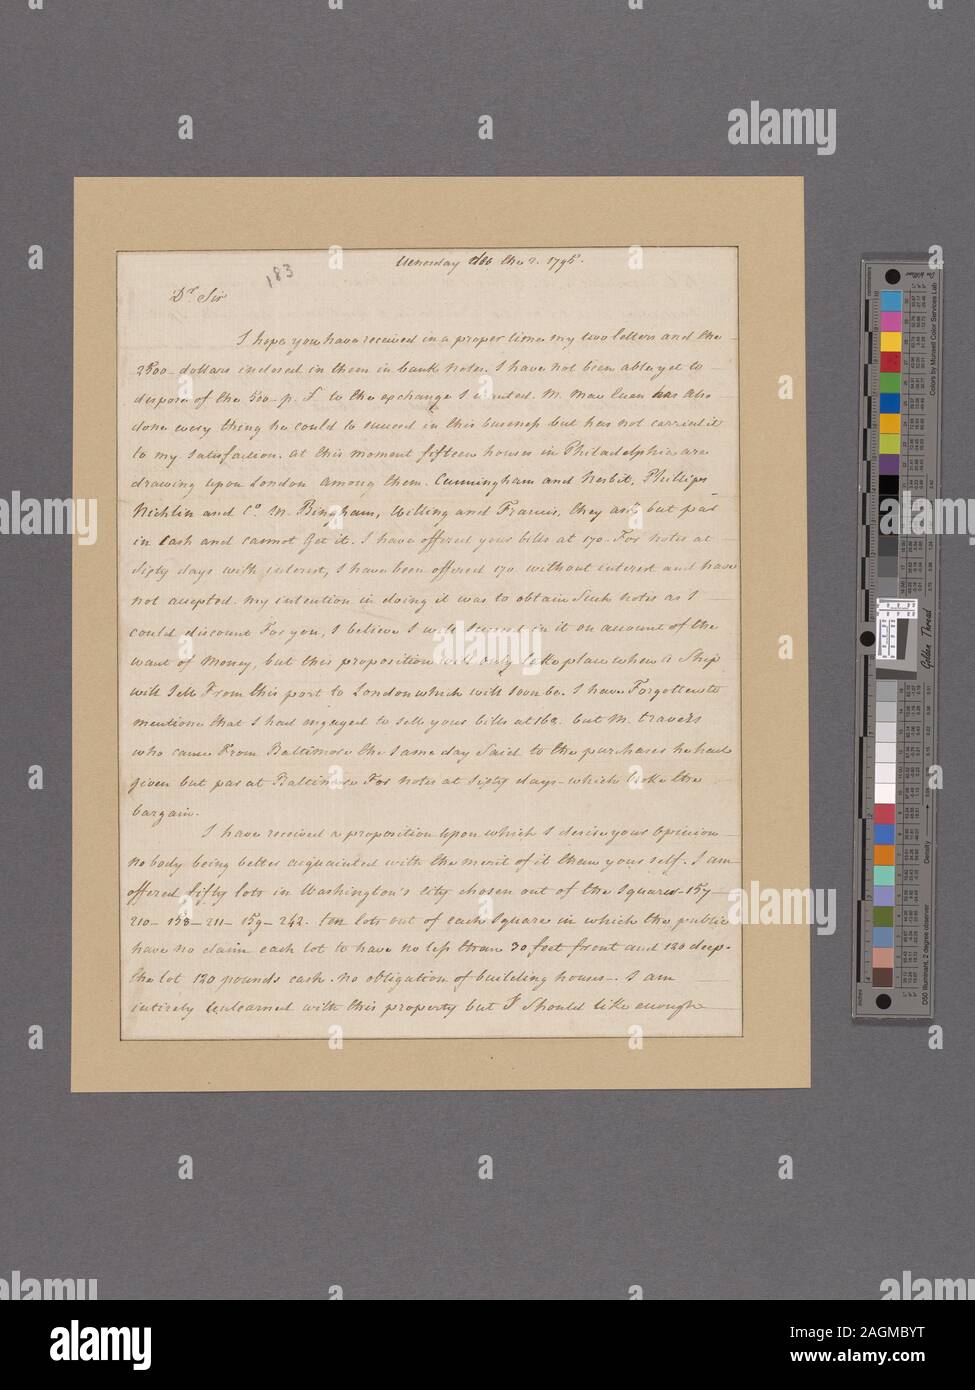 Wenesday dec the 2. 1795.
183
Dr Sir
I hope you have received in a proper time my two letters and the
2500 - dollars inclosed in them in bank notes. I have not been able yet to
dispose of the 500 - p. f. to the exchange I wanted. M. Mac Euen has also
done every thing he could to succeed in this buseness but has not carried it
to my satisfaction. at this moment fifteen houses in Philadelphia are
drawing upon London among them. Cunningham and Nesbit, Phillips
Nicklin and Co. M. Bingham, Willing and Francis, they ask but par
in Cash and cannot get it. I have offered your bills at 170. For notes at
sixty days with interest, I have been offered 170 without interest and have
not accepted. my intention in doing it was to obtain such notes as I
could discount For you, I believe I will succeed in it on account of the
want of money, but this proposition will only take place when a Ship
will sell From this port to London which will soon be. I have Forgotten to
mentione that I had engaged to sell your bills at 168. but M. travers
who came From Baltimore the same day said to the purchases he had
given but par at Baltimore For notes at sixty days - which broke the
bargain.
I have received a proposition upon which I desire your opinion
nobody being better acquainted with the merit of it than your self. I am
offered fifty lots in Washington's city chosen out of the squares - 157 -
210 - 158 - 211 - 159 - 242. ten lots out of each square in which the public
have no claim each lot to have no less than 30 feet front and 120 deep -
the lot 120 pounds cash. no obligation of building houses - I am
intirely unlearned with this property but I should like enough
alamy
a
Image ID: 2AGMBYT
www.alamy.com
Colors by Munsell Color Services Lab
Golden Thread
D50 Illuminant, 2 degree observer
Density
inches